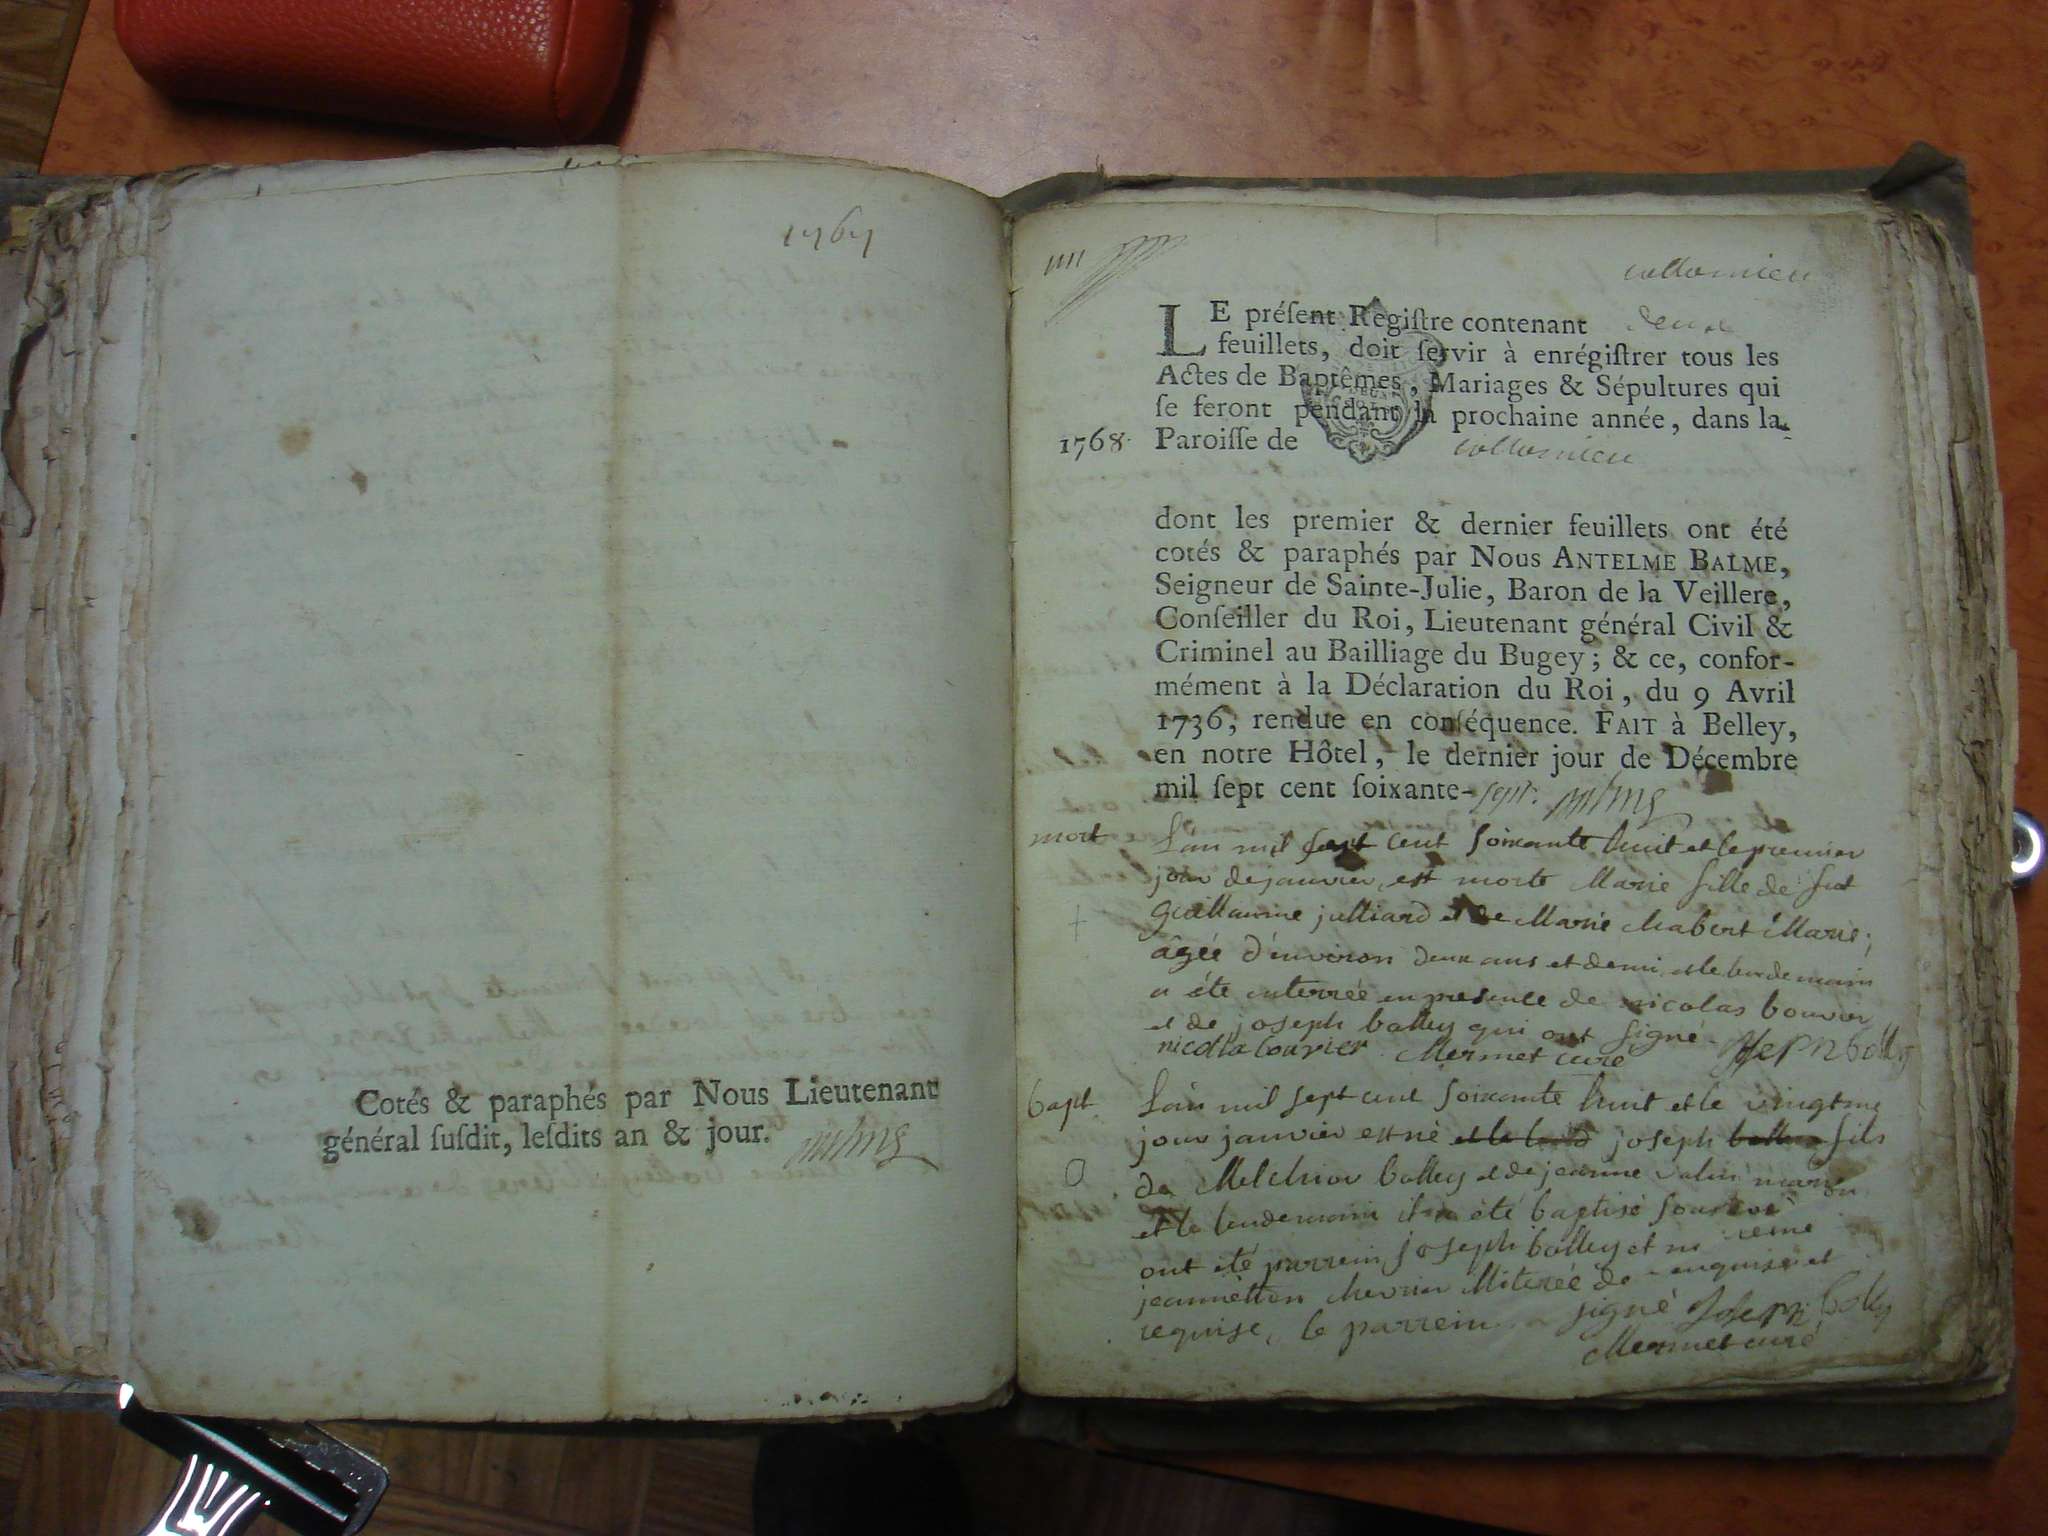 1767
Cotés & paraphés par Nous Lieutenant
général ſuſdit, leſdits an & jour.
collomieu
LE préſent Regiſtre contenant deux
feuillets, doit ſervir à enrégiſtrer tous les
Actes de Baptêmes, Mariages & Sépultures qui
ſe feront pendant la prochaine année, dans la
1768. Paroiſſe de collomieu
dont les premier & dernier feuillets ont été
cotés & paraphés par Nous ANTELME BALME,
Seigneur de Sainte-Julie, Baron de la Veillere,
Conſeiller du Roi, Lieutenant général Civil &
Criminel au Bailliage du Bugey; & ce, confor-
mément à la Déclaration du Roi, du 9 Avril
1736, rendue en conſéquence. FAIT à Belley,
en notre Hôtel, le dernier jour de Décembre
mil ſept cent ſoixante-ſept.
mort L'an mil sept cent soixante huit et le premier
jour de janvier est morte Marie fille de fut
guillaume julliard et de Marie Chabert Marié;
âgée d'environ deux ans et demi et le lendemain
a été enterrée en presence de nicolas bouvier
et de joseph bolley qui ont signé
nicolla bouvier Mermet curé
bapt. L'an mil sept cent soixante huit et le vingtme
jour janvier est né joseph fils
de Melchior bolley et de jeanne
et le lendemain il a été baptisé
ont été parrein joseph bolley et
jeannetton
requise, le parrein a signé Joseph bolley
Mermet curé